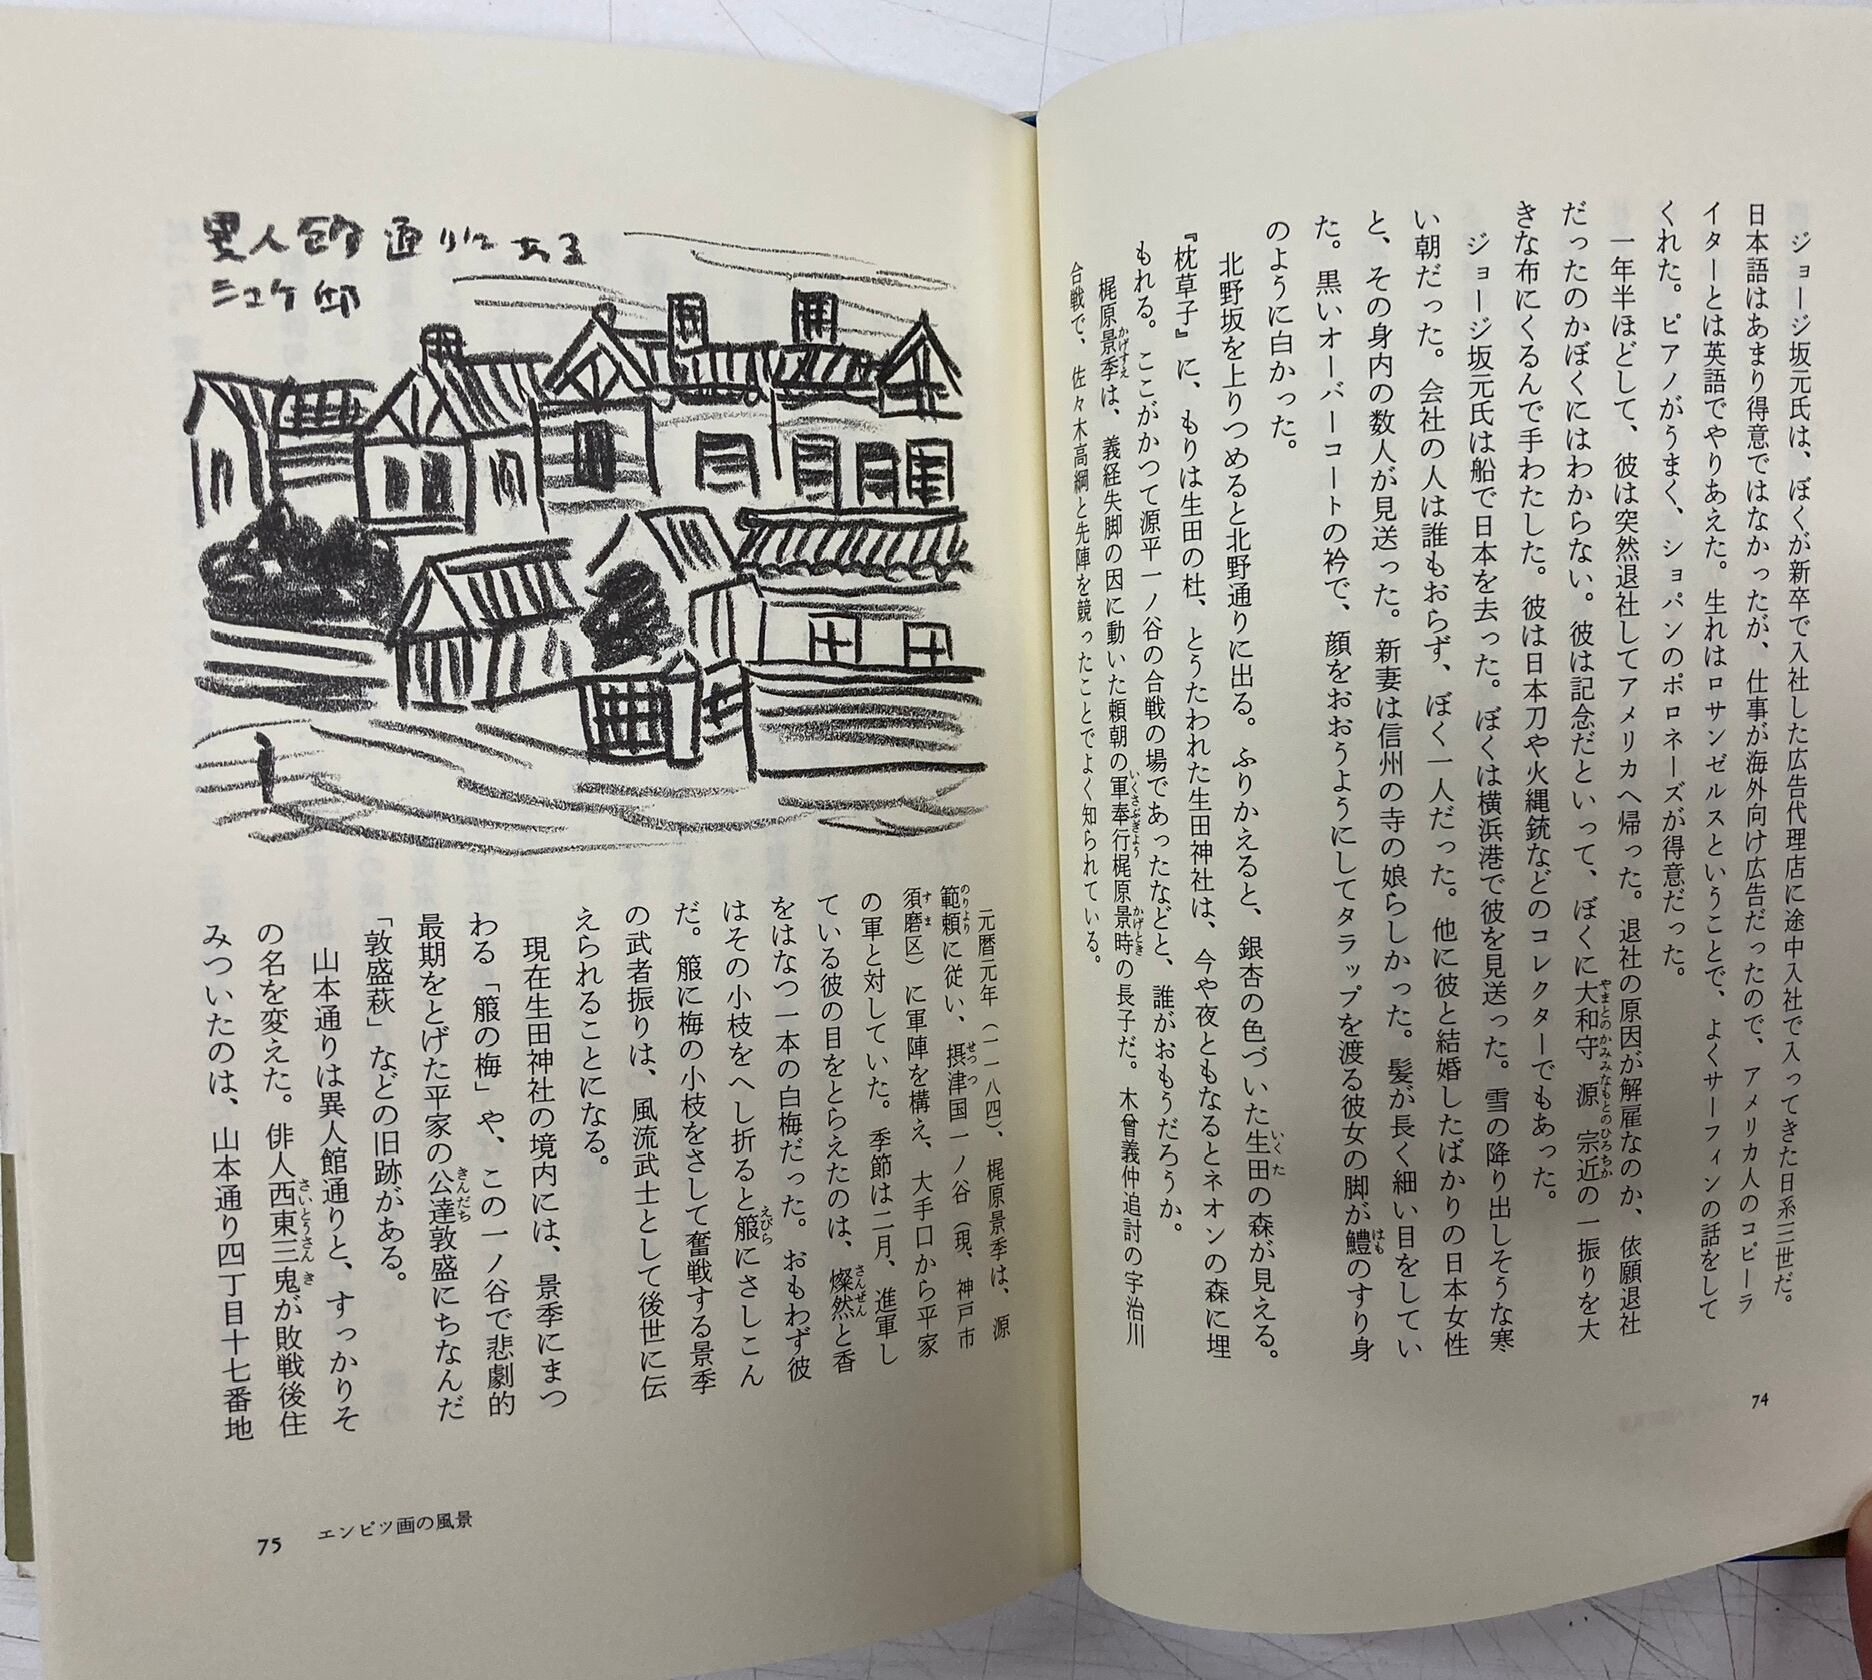 ジョージ坂元氏は、ぼくが新卒で入社した広告代理店に途中入社で入ってきた日系三世だ。
日本語はあまり得意ではなかったが、仕事が海外向け広告だったので、アメリカ人のコピーラ
イターとは英語でやりあえた。生れはロサンゼルスということで、よくサーフィンの話をして
くれた。ピアノがうまく、ショパンのポロネーズが得意だった。
一年半ほどして、彼は突然退社してアメリカへ帰った。退社の原因が解雇なのか、依願退社
だったのかぼくにはわからない。彼は記念だといって、ぼくに大和守源宗近の一振りを大
きな布にくるんで手わたした。彼は日本刀や火縄銃などのコレクターでもあった。
ジョージ坂元氏は船で日本を去った。ぼくは横浜港で彼を見送った。雪の降り出しそうな寒
い朝だった。会社の人は誰もおらず、ぼく一人だった。他に彼と結婚したばかりの日本女性
と、その身内の数人が見送った。新妻は信州の寺の娘らしかった。髪が長く細い目をしてい
た。黒いオーバーコートの衿で、顔をおおうようにしてタラップを渡る彼女の脚が鱧のすり身
のように白かった。
北野坂を上りつめると北野通りに出る。ふりかえると、銀杏の色づいた生田の森が見える。
『枕草子』に、もりは生田の杜、とうたわれた生田神社は、今や夜ともなるとネオンの森に埋
もれる。ここがかつて源平一ノ谷の合戦の場であったなどと、誰がおもうだろうか。
梶原景季は、義経失脚の因に動いた頼朝の軍奉行梶原景時の長子だ。木曾義仲追討の宇治川
合戦で、佐々木高綱と先陣を競ったことでよく知られている。
74
異人館通りにある
シュケ邸
元暦元年（一一八四）、梶原景季は、源
範頼に従い、摂津国一ノ谷（現、神戸市
須磨区）に軍陣を構え、大手口から平家
の軍と対していた。季節は二月、進軍し
ている彼の目をとらえたのは、燦然と香
をはなつ一本の白梅だった。おもわず彼
はその小枝をへし折ると箙にさしこん
だ。箙に梅の小枝をさして奮戦する景季
の武者振りは、風流武士として後世に伝
えられることになる。
現在生田神社の境内には、景季にまつ
わる「箙の梅」や、この一ノ谷で悲劇的
最期をとげた平家の公達敦盛にちなんだ
「敦盛萩」などの旧跡がある。
山本通りは異人館通りと、すっかりそ
の名を変えた。俳人西東三鬼が敗戦後住
みついたのは、山本通り四丁目十七番地
75 エンピツ画の風景